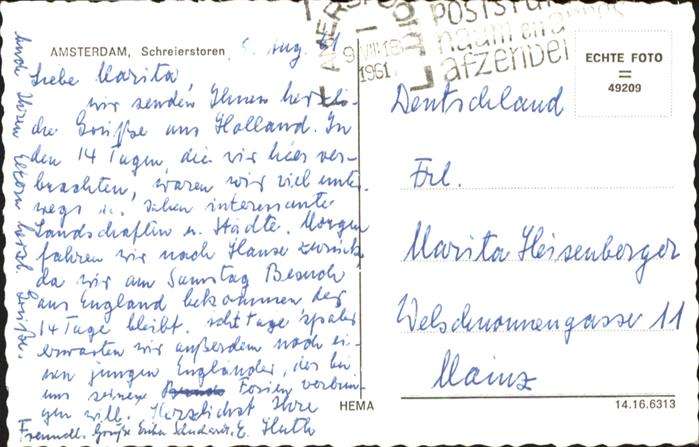 AMSTERDAM, Schreierstoren
Aug. 61
Liebe Marita,
wir senden Ihnen herzli-
che Grüße aus Holland. In
den 14 Tagen, die wir hier ver-
brachten, waren wir viel unter-
wegs u. sahen interessante
Landschaften u. Städte. Morgen
fahren wir nach Hause zurück,
da wir am Samstag Besuch
aus England bekommen der
14 Tage bleibt. Acht Tage später
erwarten wir außerdem noch ei-
nen jungen Engländer, der bei
uns seine Ferien verbrin-
gen will. Herzlichst Ihre
E. Huth
Freundl. Grüße Erika
Auch Ihren Eltern herzl. Grüße.
AMERSFOORT
9 VIII 18
1961
POST
naam en
afzender
ECHTE FOTO
=
49209
Deutschland
Frl.
Marita Heisenberger
Welschnonnengasse 11
Mainz
HEMA
14.16.6313